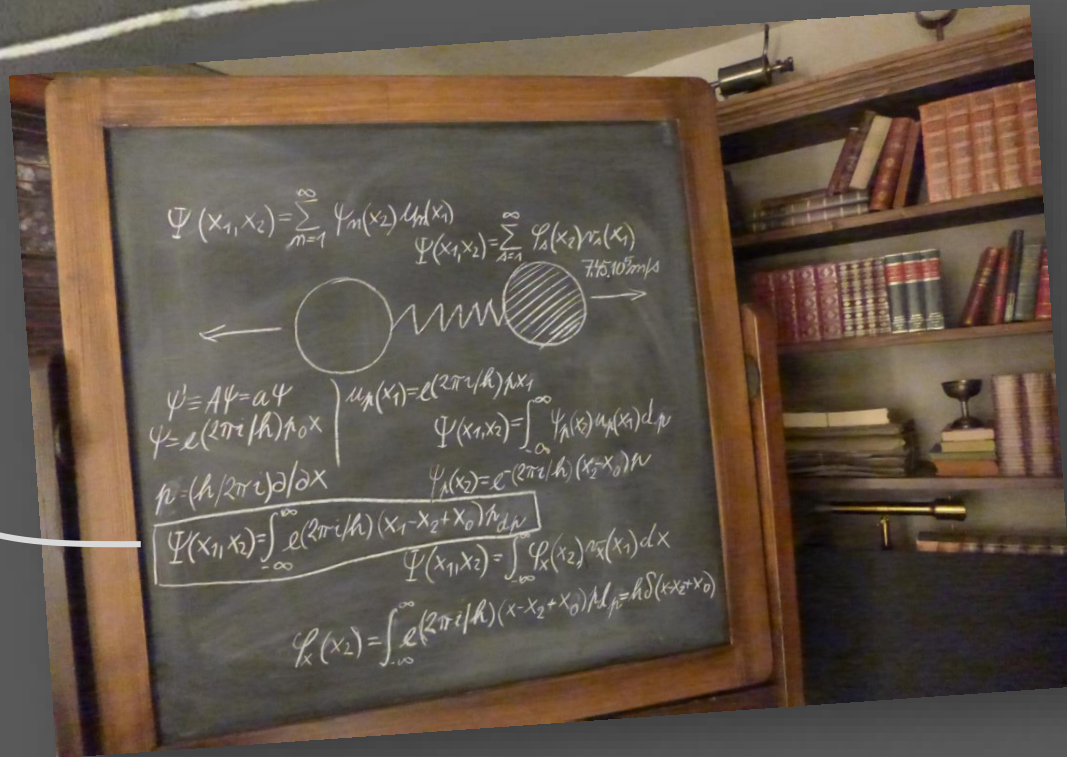 Ψ(x₁,x₂)=∑ₙ₌₁^∞ ψₙ(x₂)uₙ(x₁)
Ψ(x₁,x₂)=∑ₛ₌₁^∞ φₛ(x₂)vₛ(x₁)
7,45.10⁵m/s
ψ'=Aψ=aψ
ψ=e(2πi/h)p₀x
uₚ(x₁)=e(2πi/h)px₁
Ψ(x₁,x₂)=∫₋∞^∞ ψₚ(x₂)uₚ(x₁)dp
p=(h/2πi)∂/∂x
ψₚ(x₂)=e-(2πi/h)(x₂-x₀)p
Ψ(x₁,x₂)=∫₋∞^∞ e(2πi/h)(x₁-x₂+x₀)p dp
Ψ(x₁,x₂)=∫₋∞^∞ φₓ(x₂)vₓ(x₁)dx
φₓ(x₂)=∫₋∞^∞ e(2πi/h)(x-x₂+x₀)p dp=hδ(x-x₂+x₀)